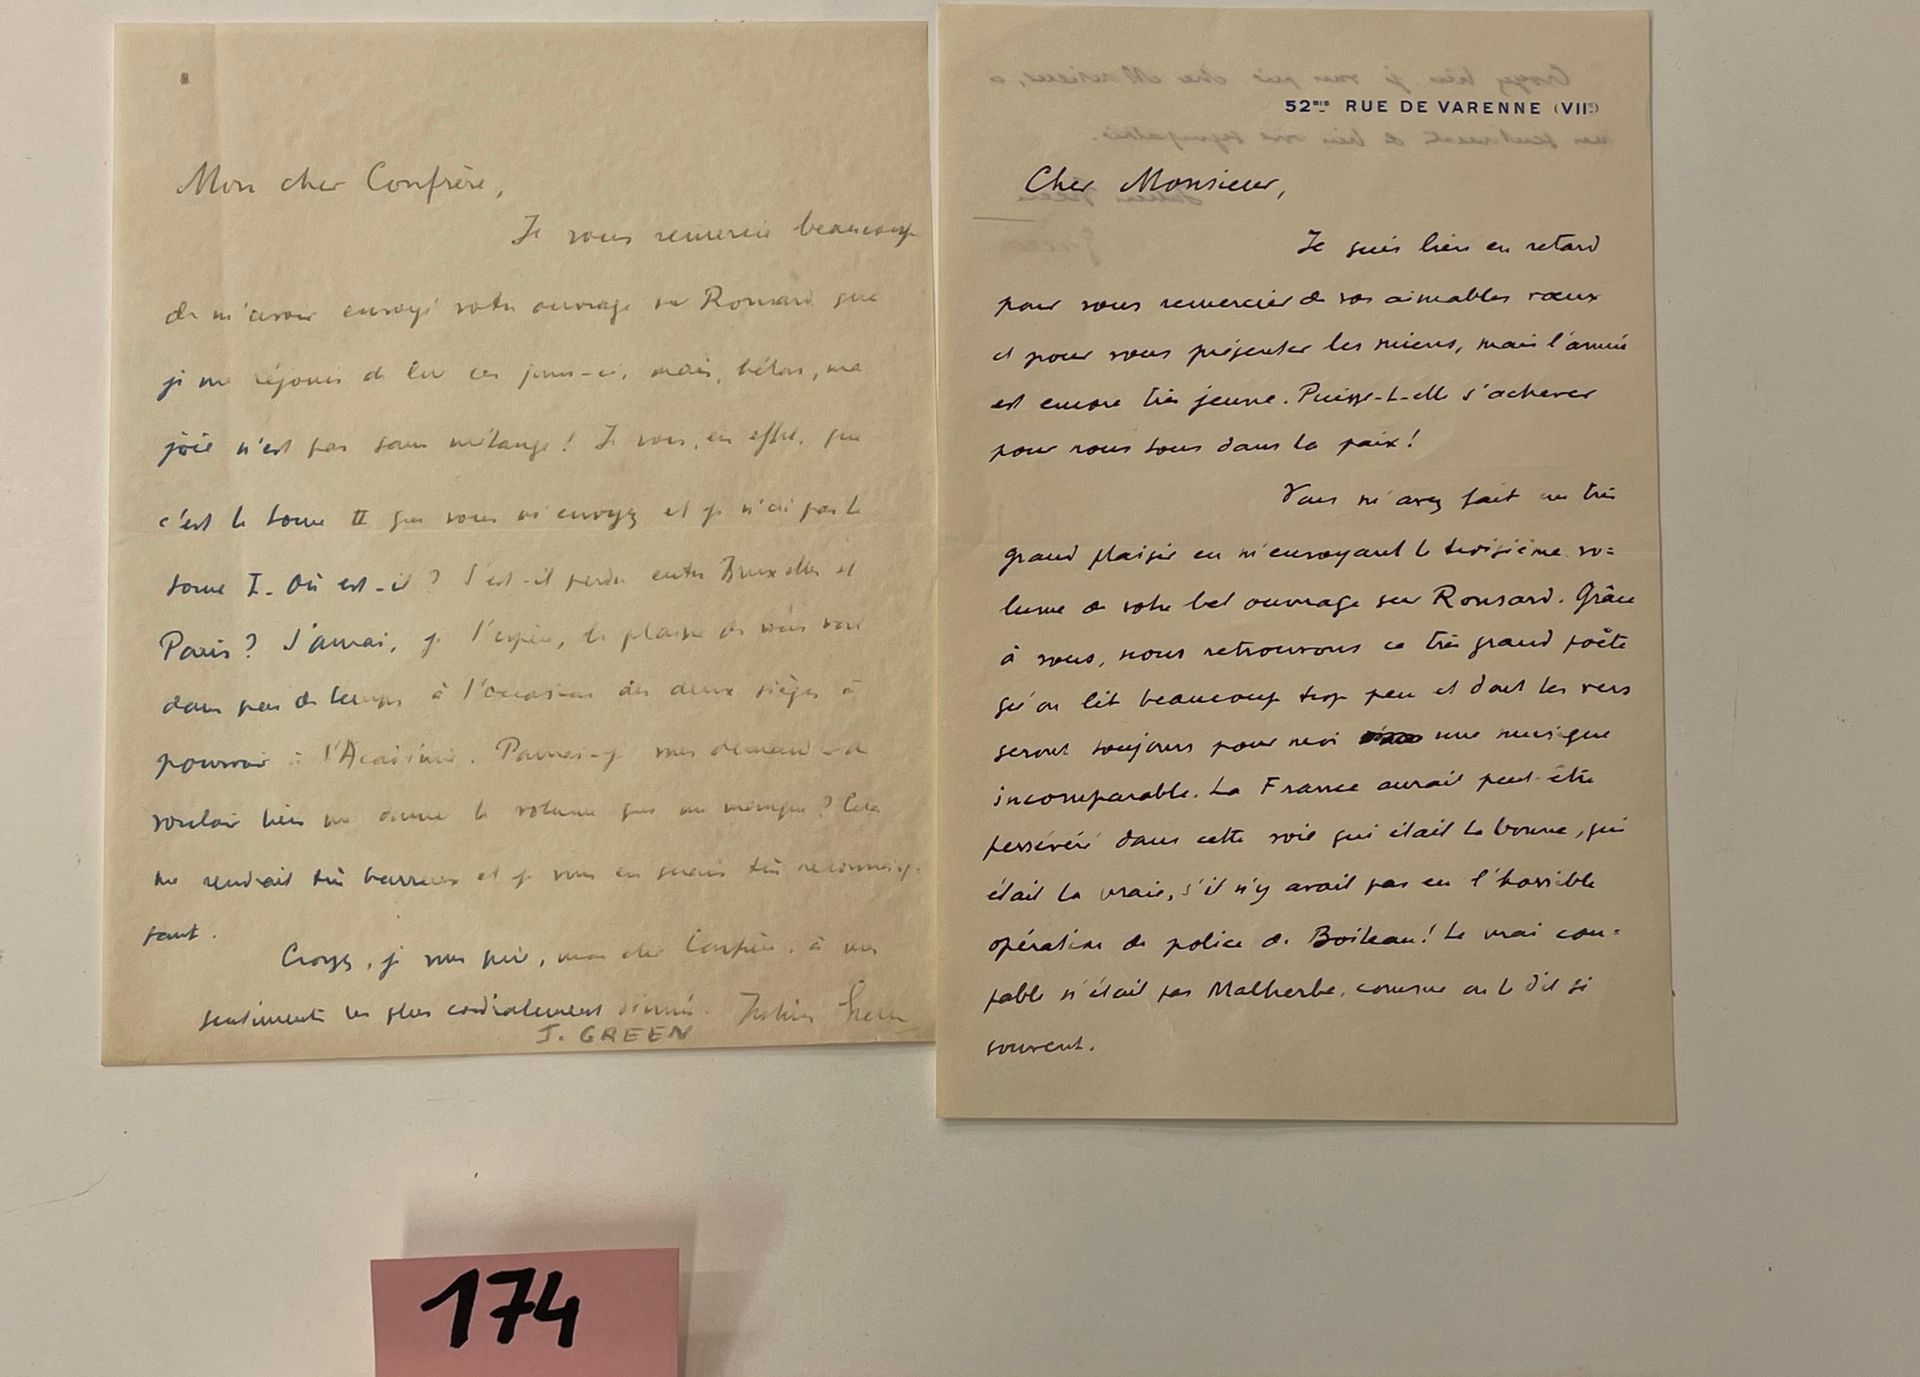 Mon cher Confrère,
Je vous remercie beaucoup
de m'avoir envoyé votre ouvrage sur Ronsard que
je me réjouis de lire ces jours-ci, mais, hélas, ma
joie n'est pas sans mélange! Je vois, en effet, que
c'est le tome II que vous m'envoyez et je n'ai pas le
tome I. Où est-il? S'est-il perdu entre Bruxelles et
Paris? J'aurai, je l'espère, le plaisir de vous voir
dans peu de temps à l'occasion des deux sièges à
pourvoir à l'Académie. Pourrais-je vous demander de
vouloir bien me donner le volume qui me manque? Cela
me rendrait très heureux et je vous en serais très reconnais-
sant.
Croyez, je vous prie, mon cher Confrère, à mes
sentiments les plus cordialement dévoués. Julien Green
J. GREEN
52BIS RUE DE VARENNE (VIIE)
Cher Monsieur,
Je suis bien en retard
pour vous remercier de vos aimables vœux
et pour vous présenter les miens, mais l'année
est encore très jeune. Puisse-t-elle s'achever
pour nous tous dans la paix!
Vous m'avez fait un très
grand plaisir en m'envoyant le troisième vo=
lume de votre bel ouvrage sur Ronsard. Grâce
à vous, nous retrouvons ce très grand poète
qu'on lit beaucoup trop peu et dont les vers
seront toujours pour moi une musique
incomparable. La France aurait peut-être
persévéré dans cette voie qui était la bonne, qui
était la vraie, s'il n'y avait pas eu l'horrible
opération de police de Boileau! Le vrai cou=
pable n'était pas Malherbe, comme on le dit si
souvent.
174